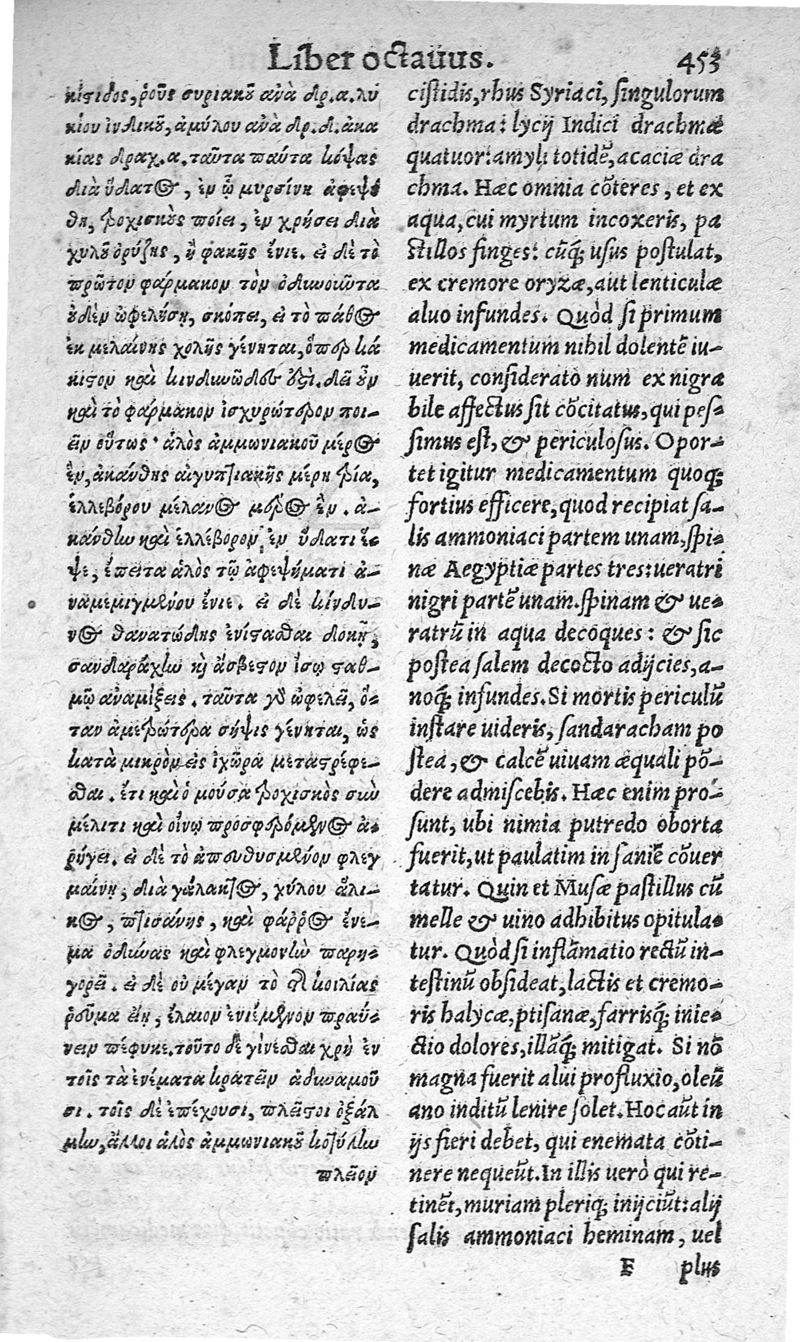 Liber octavus. 453
κίςιδος, ῥοῦς συριακοῦ ἀνὰ δρ. α. λυ
κίου ἰνδικοῦ, ἀμύλου ἀνὰ δρ. δ. ἀκα
κίας δραχ. α. ταῦτα πάντα κόψας
διὰ ὕδατος, ἐν ᾧ μυρσίνη ἀφεψή
θη, τροχισκοὺς ποίει, ἐν χρήσει διὰ
χυλοῦ ὀρύζης, ἢ φακῆς ἔνιε. εἰ δὲ τὸ
πρῶτον φάρμακον τὸν ὀδυνοῦντα
οὐδὲν ὠφελήσῃ, σκόπει, εἰ τὸ πάθος
ἐκ μελαίνης χολῆς γένηται, ὅπερ κά
κιςον καὶ κινδυνῶδες ὅςι. δεῖ οὖν
καὶ τὸ φάρμακον ἰσχυρώτερον ποι-
εῖν οὕτως· ἁλὸς ἀμμωνιακοῦ μέρος
ἓν, ἀκάνθης αἰγυπτιακῆς μέρη τρία,
ἑλλεβόρου μέλανος μέρος ἕν. ἀ-
κάνθην καὶ ἑλλέβορον ἐν ὕδατι ἕ-
ψε, ἔπειτα ἁλὸς τῷ ἀφεψήματι ἀ-
ναμεμιγμένου ἔνιε. εἰ δὲ κίνδυ-
νος θανατώδης ἐνίςασθαι δοκῇ,
σανδαράχην κỳ ἄσβεςον ἴσῳ ςαθ-
μῷ ἀναμίξεις. ταῦτα γὸ ὠφελεῖ, ὅ-
ταν ἀμετρώτερα σῆψις γένηται, ὡς
κατὰ μικρὸν εἰς ἰχῶρα μεταςρέφε-
σθαι. ἔτι καὶ ὁ μούσα τροχισκὸς σὺν
μέλιτι καὶ οἴνῳ προσφερόμενος ἀ-
ρήγει. εἰ δὲ τὸ ἀπευθυσμένον φλεγ
μαίνῃ, διὰ γάλακτος, χύλου ἅλι-
κος, πτισάνης, καὶ φάρρος ἔνε-
μα ὀδύνας καὶ φλεγμονὴν παρη-
γορεῖ. εἰ δὲ οὐ μέγαν τὸ τῆς κοιλίας
ῥεῦμα εἴη, ἔλαιον ἐνιέμενον πραΰ-
νειν πέφυκε. τοῦτο δὲ γίνεσθαι χρὴ ἐν
τοῖς τὰ ἐνέματα κρατεῖν ἀδυναμοῦ
σι. τοῖς δὲ ἐπέχουσι, πλεῖςοι ὀξάλ
μην, ἄλλοι ἁλὸς ἀμμωνιακοῦ κοτύλην
πλεῖον
cistidis, rhus Syriaci, singulorum
drachma: lycij Indici drachmæ
quatuor: amyli totidē, acaciæ dra
chma. Hæc omnia cōteres, et ex
aqua, cui myrtum incoxeris, pa
stillos finges: cūq; usus postulat,
ex cremore oryzæ, aut lenticulæ
aluo infundes. Quòd si primum
medicamentum nihil dolentē iu-
uerit, considerato num ex nigra
bile affectus sit cōcitatus, qui pes-
simus est, & periculosus. Opor-
tet igitur medicamentum quoq;
fortius efficere, quod recipiat sa-
lis ammoniaci partem unam, spi-
næ Aegyptiæ partes tres: ueratri
nigri partē unam. spinam & ue-
ratrū in aqua decoques: & sic
postea salem decocto adijcies, a-
noq; infundes. Si mortis periculū
instare uideris, sandaracham po
stea, & calcē uiuam æquali pō-
dere admiscebis. Hæc enim pro-
sunt, ubi nimia putredo oborta
fuerit, ut paulatim in saniē cōuer
tatur. Quin et Musæ pastillus cū
melle & uino adhibitus opitula-
tur. Quòd si inflāmatio rectū in-
testinū obsideat, lactis et cremo-
ris halycæ, ptisanæ, farrisq; inie-
ctio dolores, illāq; mitigat. Si nō
magna fuerit alui profluxio, oleū
ano inditū lenire solet. Hoc aūt in
ijs fieri debet, qui enemata cōti-
nere nequeūt. In illis uerò qui re-
tinēt, muriam pleriq; inijciūt: alij
salis ammoniaci heminam, uel
F plus